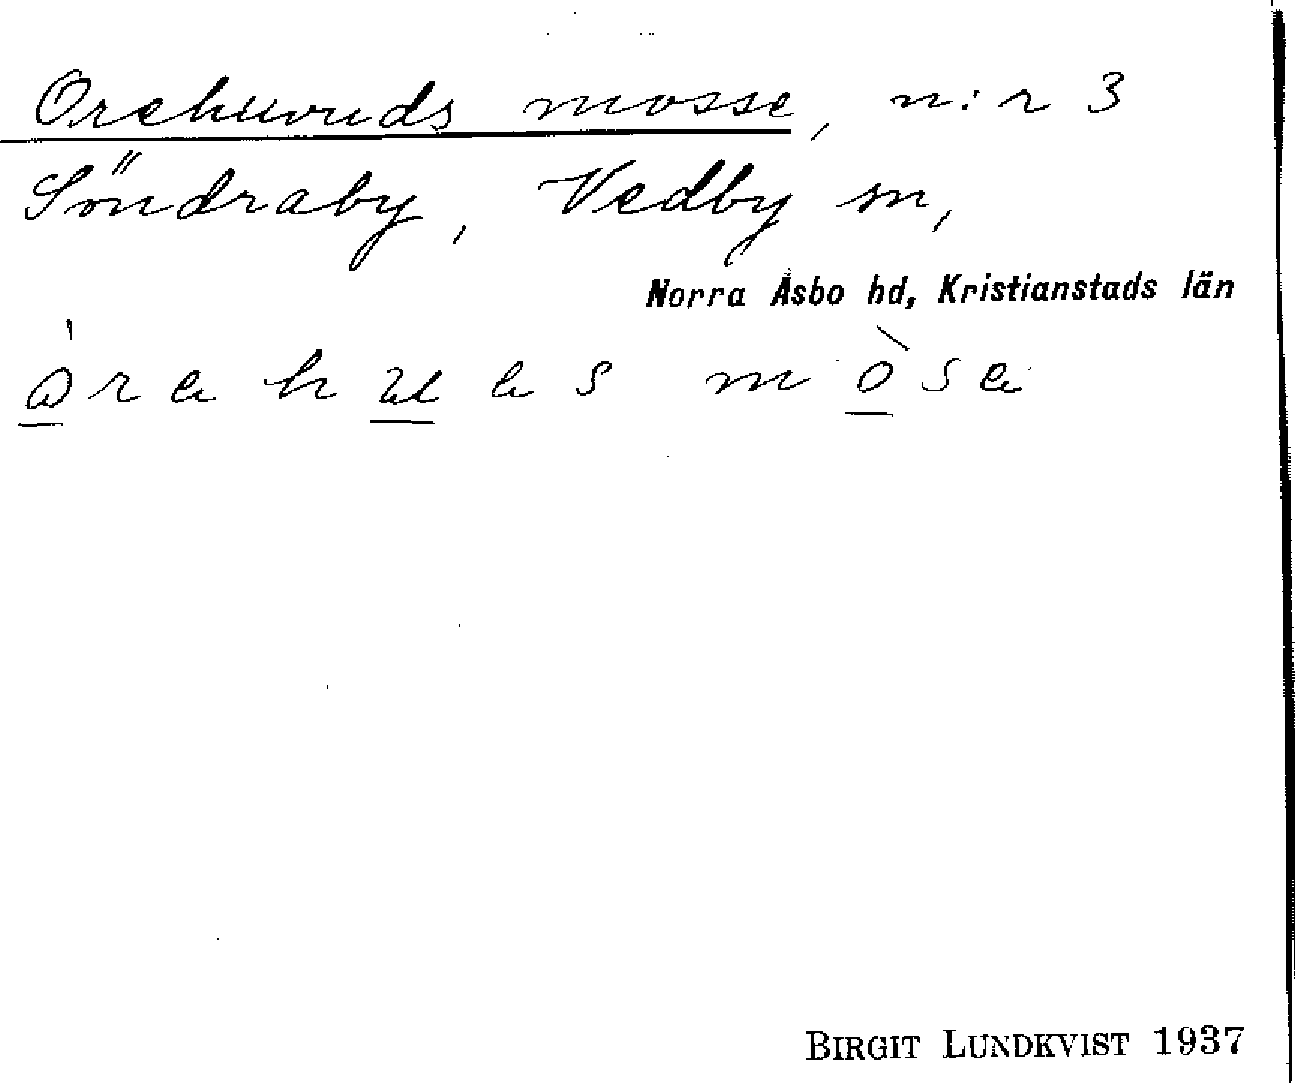 Orehuvuds mosse, n:r 3
Söndraby, Vedby sn,
Norra Åsbo hd, Kristianstads län
BIRGIT LUNDKVIST 1937